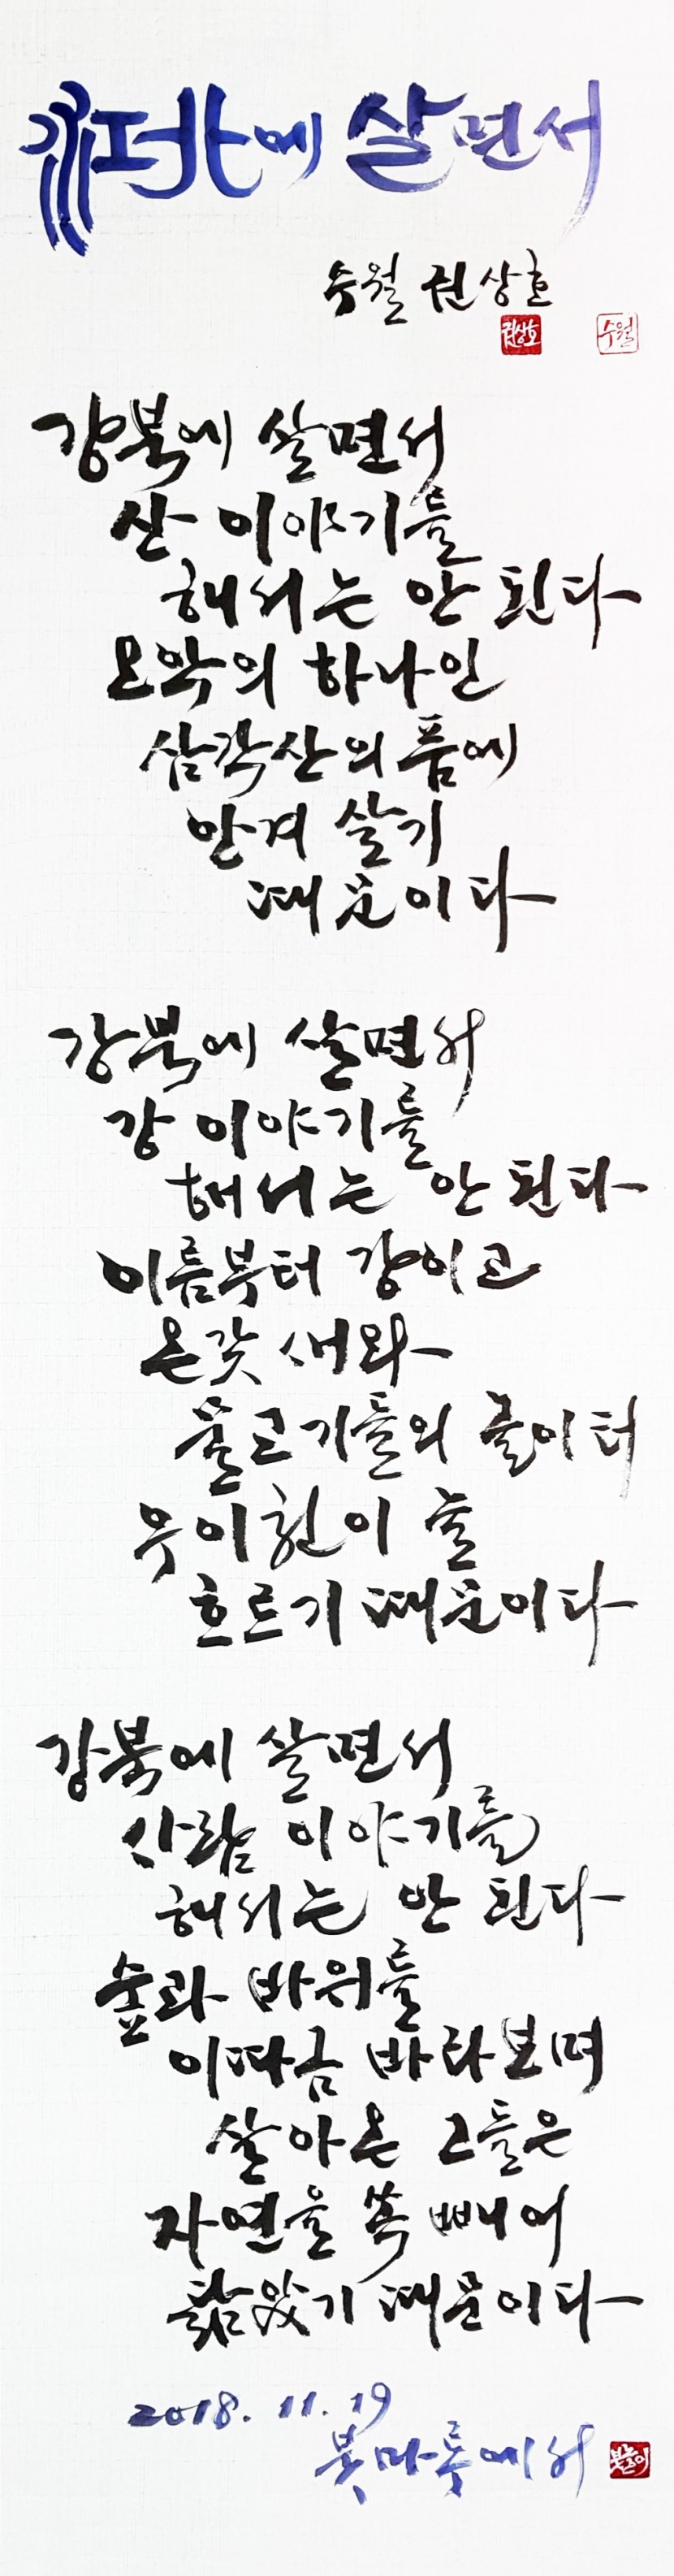 江北에 살면서
수월 권상호
권상호 수월
강북에 살면서
산 이야기를
해서는 안 된다
오악의 하나인
삼각산의 품에
안겨 살기
때문이다
강북에 살면서
강 이야기를
해서는 안 된다
이름부터 강이고
온갖 새와
물고기들의 놀이터
우이천이 늘
흐르기 때문이다
강북에 살면서
사람 이야기를
해서는 안 된다
숲과 바위를
이따금 바라보며
살아온 그들은
자연을 쏙 빼어
닮았기 때문이다
2018. 11. 19
붓마루에서
붓놀이